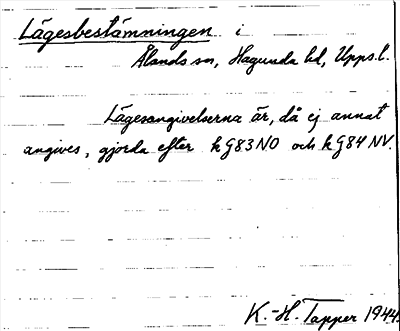 Lägesbestämningen i
Ålands sn, Hagunda hd, Upps.l.
Lägesangivelserna är, då ej annat
angives, gjorda efter k G83NO och k G84 NV.
K.-H. Tapper 1944.